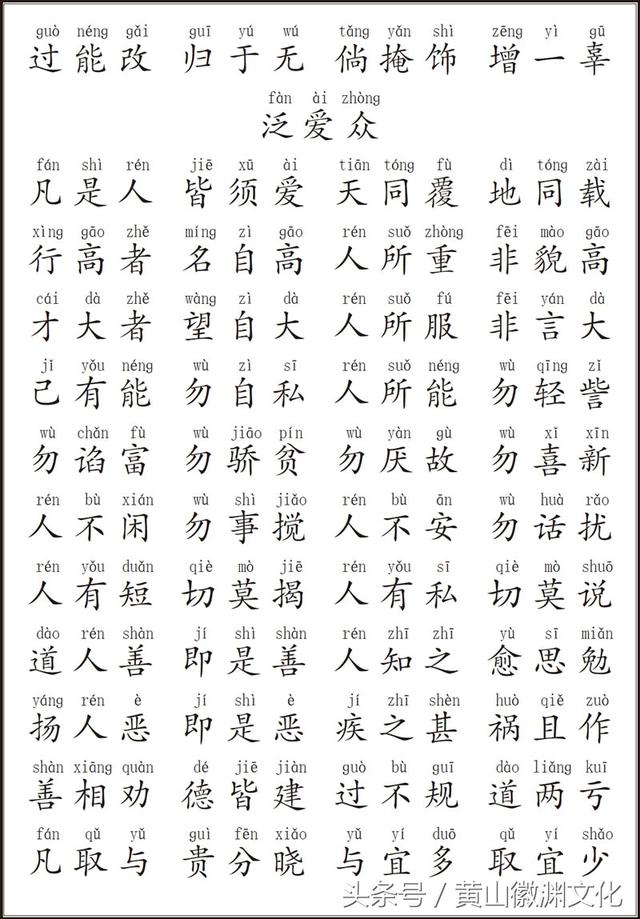 guò néng gǎi guī yú wú tǎng yǎn shì zēng yì gū
过能改 归于无 倘掩饰 增一辜
fàn ài zhòng
泛爱众
fán shì rén jiē xū ài tiān tóng fù dì tóng zài
凡是人 皆须爱 天同覆 地同载
xìng gāo zhě míng zì gāo rén suǒ zhòng fēi mào gāo
行高者 名自高 人所重 非貌高
cái dà zhě wàng zì dà rén suǒ fú fēi yán dà
才大者 望自大 人所服 非言大
jǐ yǒu néng wù zì sī rén suǒ néng wù qīng zǐ
己有能 勿自私 人所能 勿轻訾
wù chǎn fù wù jiāo pín wù yàn gù wù xǐ xīn
勿谄富 勿骄贫 勿厌故 勿喜新
rén bù xián wù shì jiǎo rén bù ān wù huà rǎo
人不闲 勿事搅 人不安 勿话扰
rén yǒu duǎn qiè mò jiē rén yǒu sī qiè mò shuō
人有短 切莫揭 人有私 切莫说
dào rén shàn jí shì shàn rén zhī zhī yù sī miǎn
道人善 即是善 人知之 愈思勉
yáng rén è jí shì è jí zhī shèn huò qiě zuò
扬人恶 即是恶 疾之甚 祸且作
shàn xiāng quàn dé jiē jiàn guò bù guī dào liǎng kuī
善相劝 德皆建 过不规 道两亏
fán qǔ yǔ guì fēn xiǎo yǔ yí duō qǔ yí shǎo
凡取与 贵分晓 与宜多 取宜少
头条号 / 黄山徽渊文化